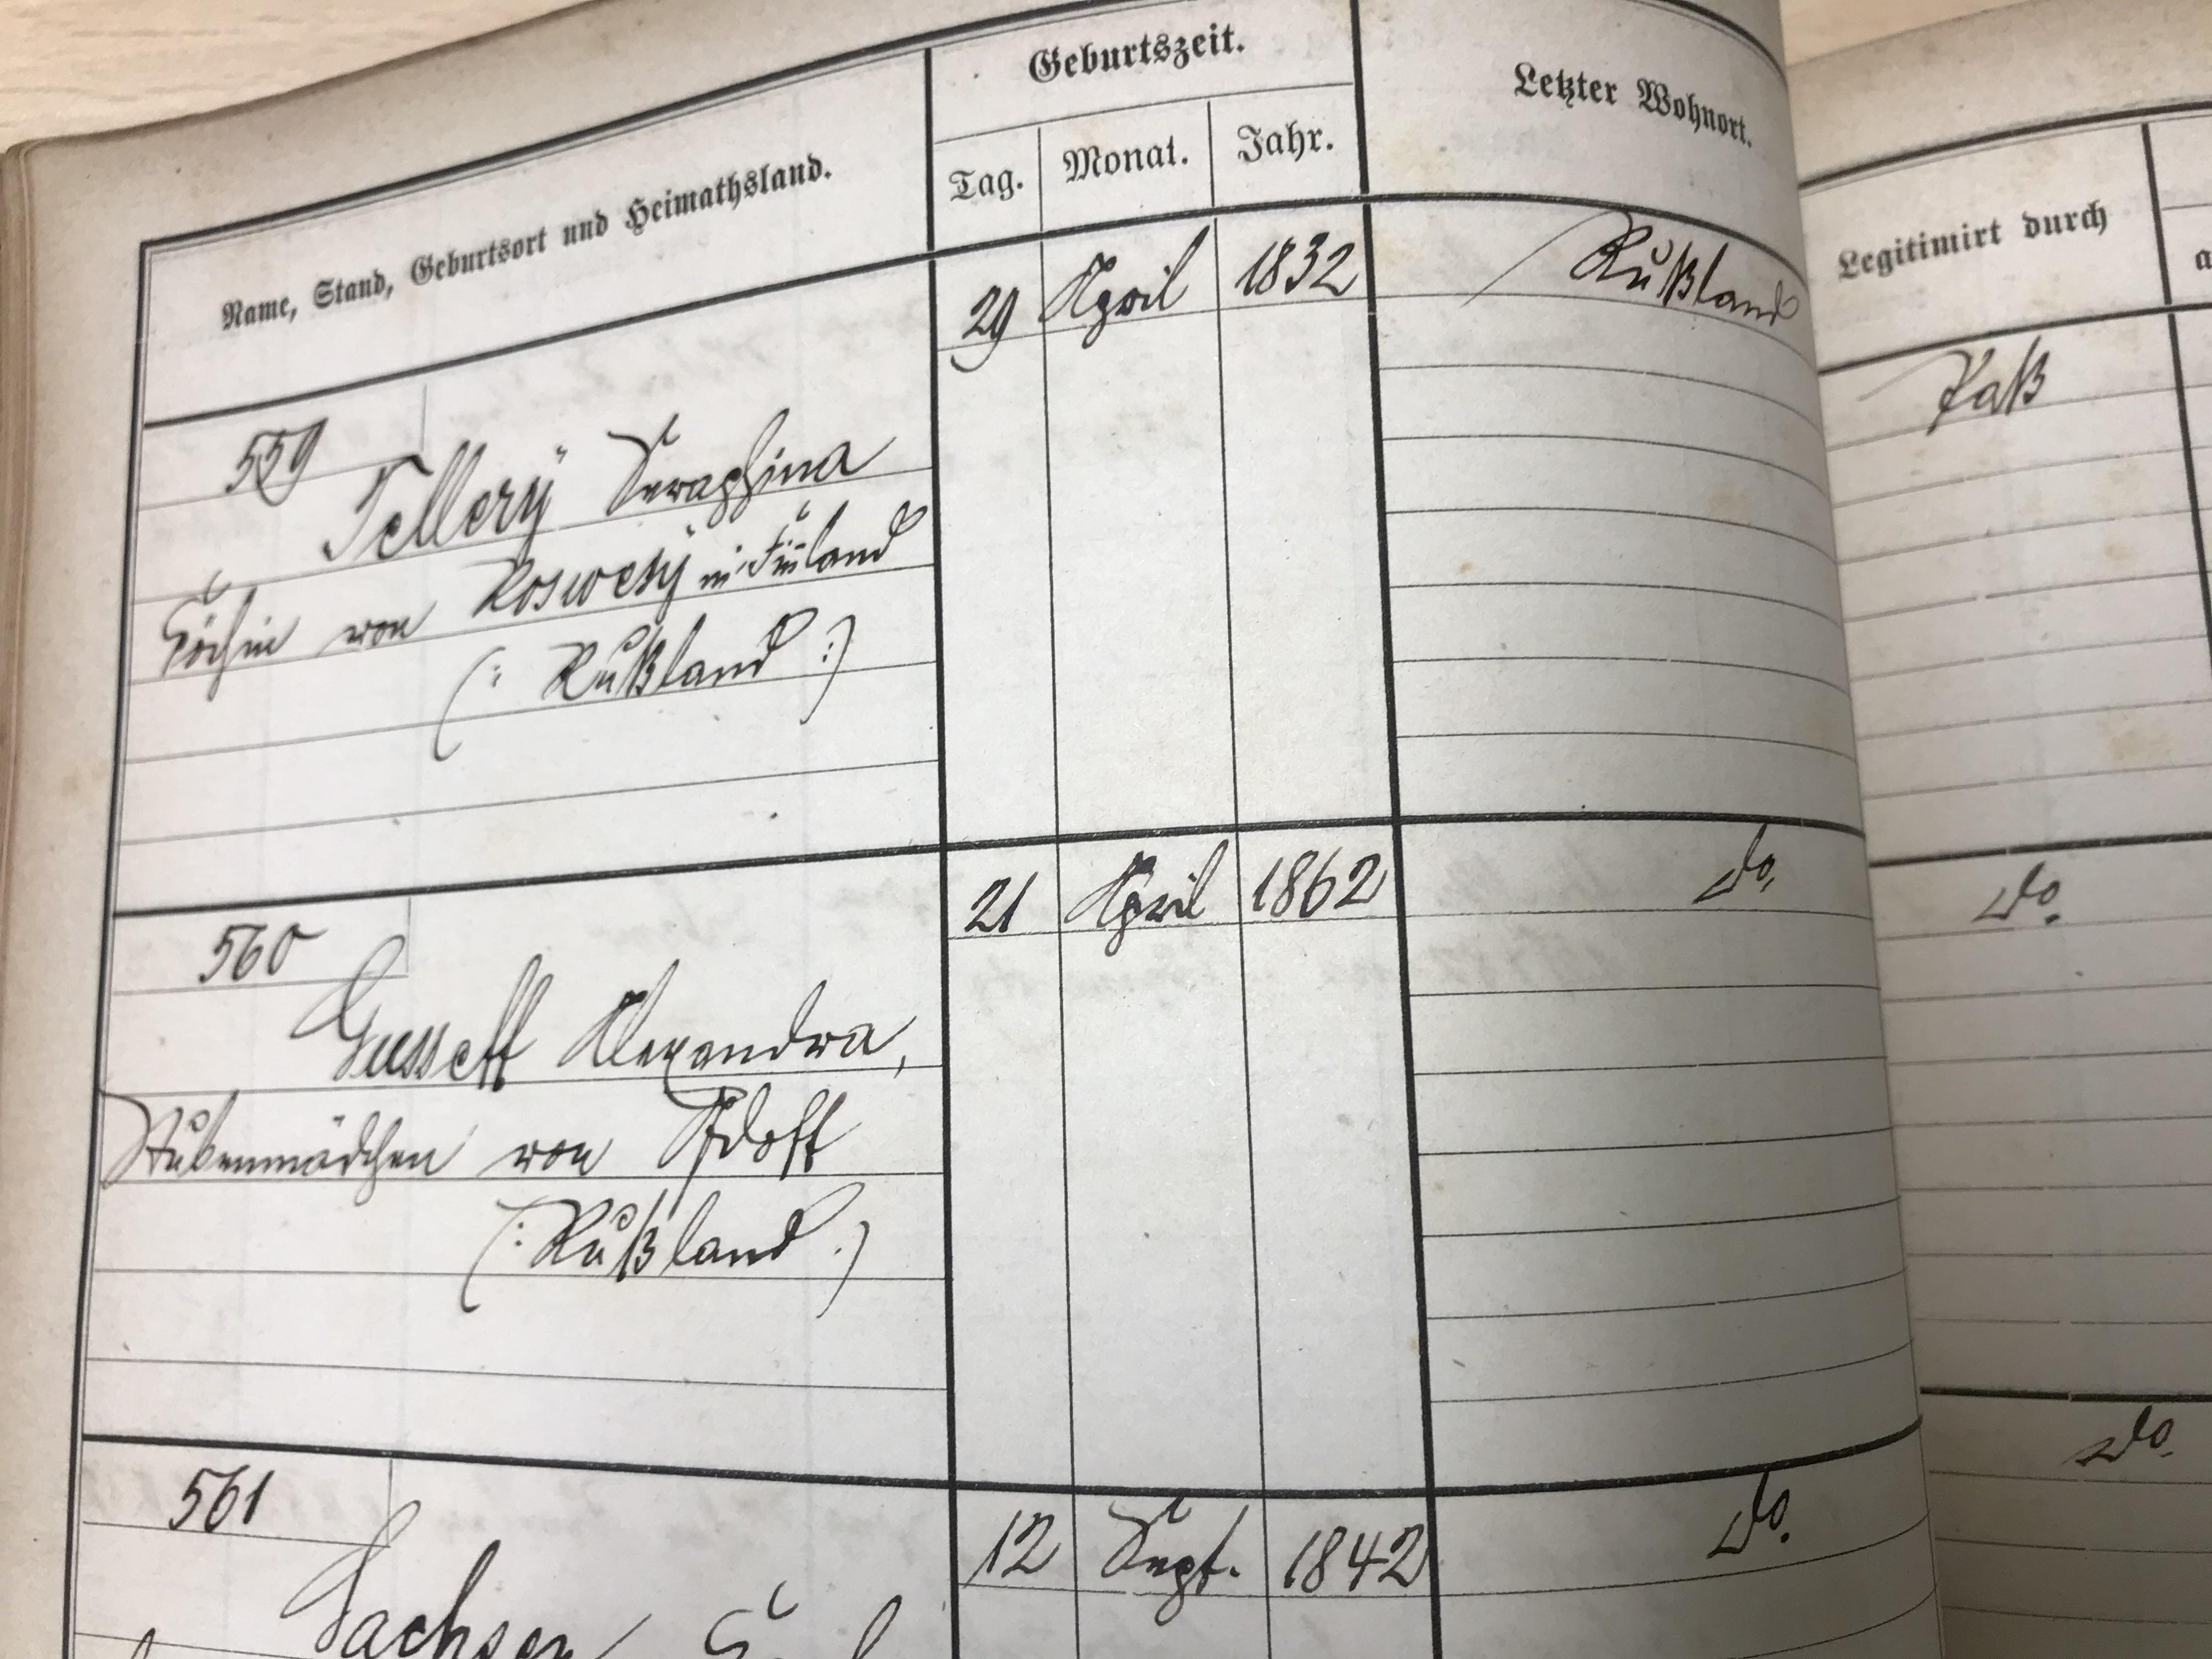 Name, Stand, Geburtsort und Heimathsland.
Geburtszeit.
Tag. Monat. Jahr.
Letzter Wohnort.
Legitimirt durch
559
Tellery Seraphina
Köchin von in Finland
(: Rußland :)
29 April 1832
Rußland
Paß
560
Gusseff Alexandra,
Stubenmädchen von
(: Rußland :)
21 April 1862
do.
do.
561
Sachsen
12 Sept. 1842
do.
do.